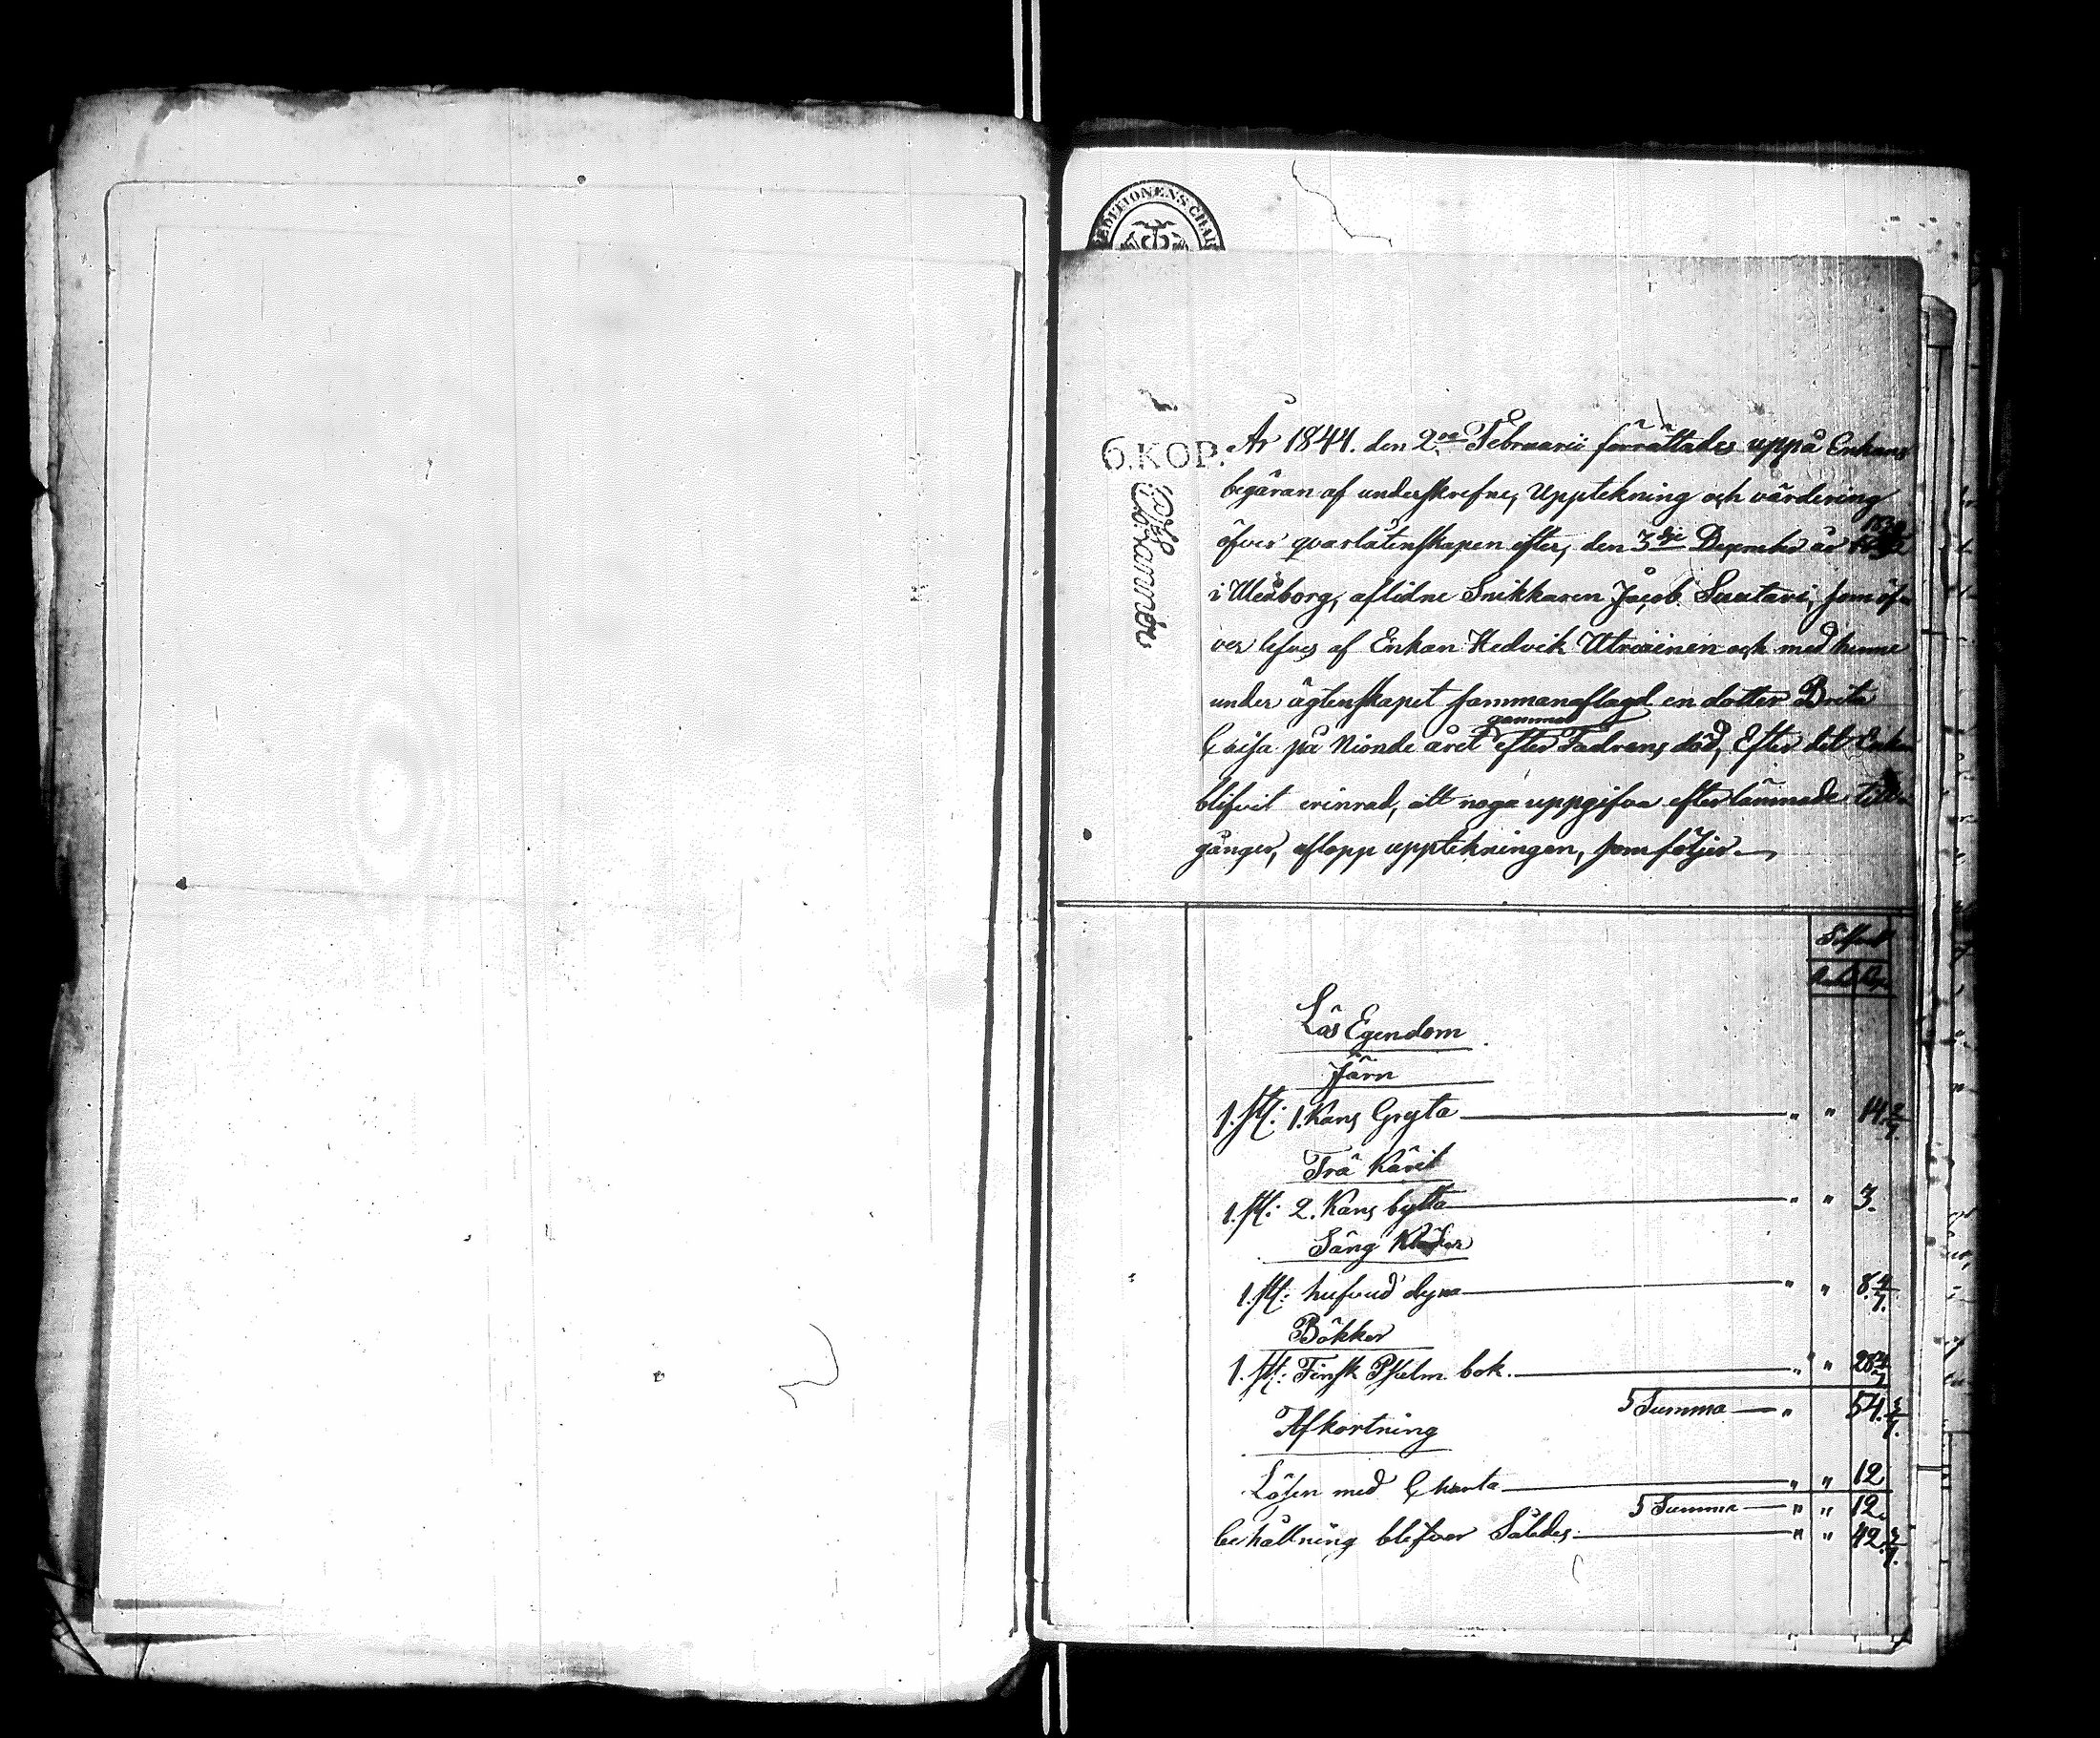 EDITIONENS CHAR
6. KOP.
År 1844. den 2ne Februarii förrättades uppå Enkans
begäran af underskrefne, Upptekning och värdering
öfver qvarlåtenskapen efter, den 3dje December år
i Uleåborg, aflidne Snikkaren Jacob Sautari, som öf-
ver lefves af Enkan Hedvik Utriainen och med henne
under ägtenskapet sammanaflagd en dotter Brita
gammal
Caisa på Nionde året efter Fadrens död, Efter det Enkan
blifvit erinrad, att noga uppgifva efterlämnade till-
gånger, aflopp upptekningen, som följer.
Silfver
Rub. Kop.
Lös Egendom
Järn
1. st: 1. Kans Gryta " " 14. 2/7.
Trä Käril
1. st: 2. Kans bytta " " 3.
Säng Kläder
1. st: hufvud dyna " " 8. 4/7.
Bökker
1. st: Finsk Psalm bok. " " 28 4/7
Summa " 54. 3/7.
Afkortning
Lösen med Charta " " 12
Summa " " 12.
behållning blifver Således " " 42. 3/7.